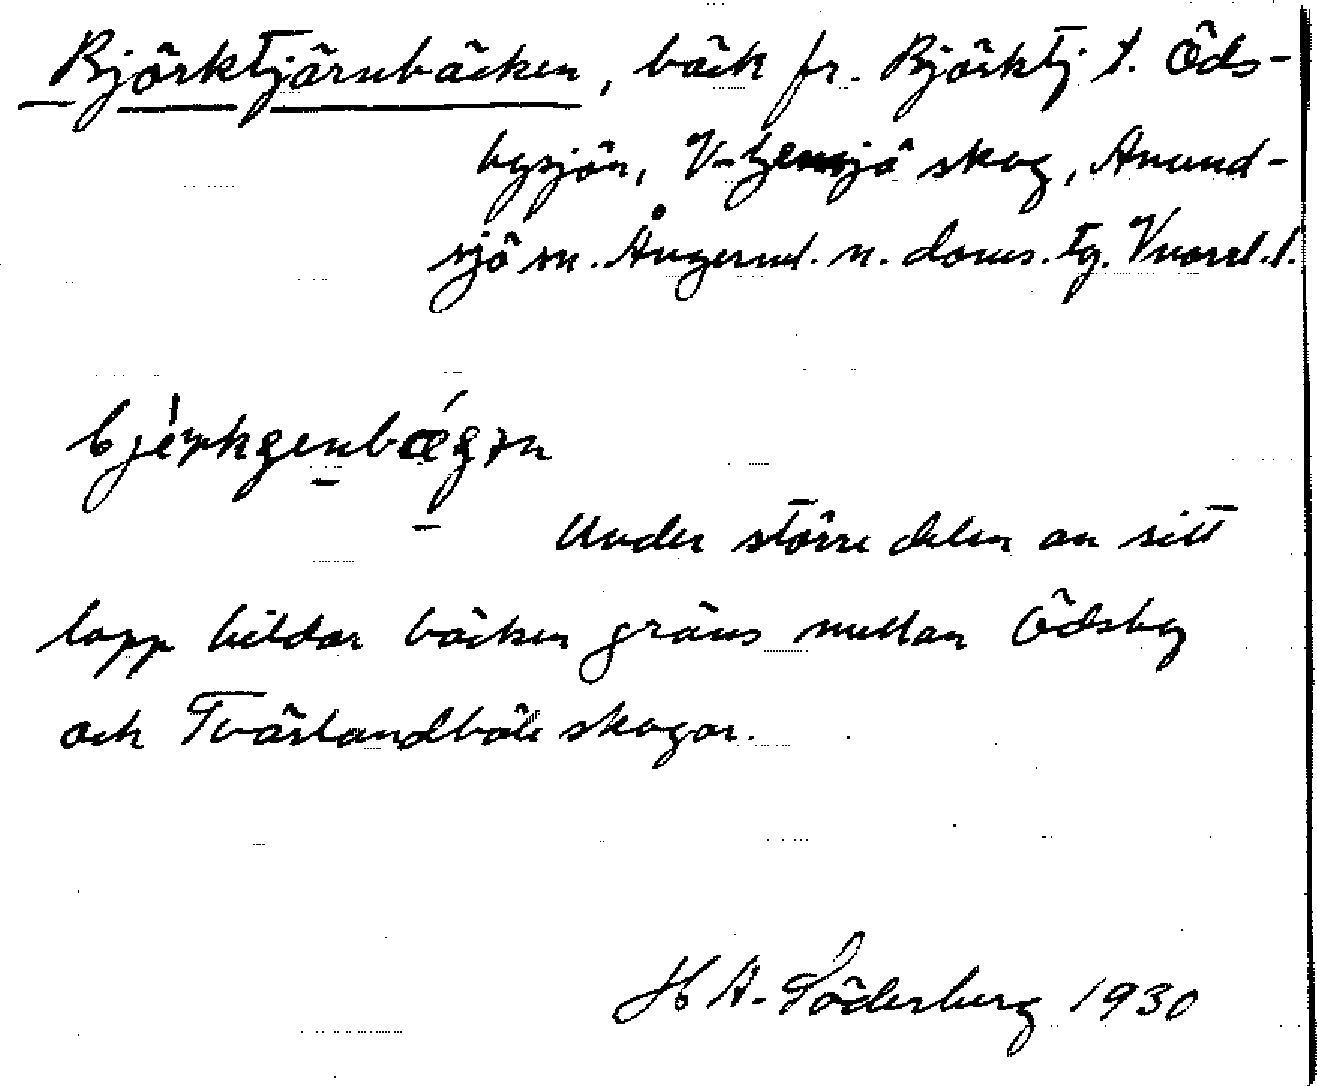 Björktjärnbäcken, bäck fr. Björktj t. Öds-
bysjön, V-Gensjö skog, Anund-
sjö sn. Ångerml. n. doms. tg. Vnorrl. l.
Under större delen av sitt
lopp bildar bäcken gräns mellan Ödsby
och Tvärlandböle skogar.
H A. Söderberg 1930